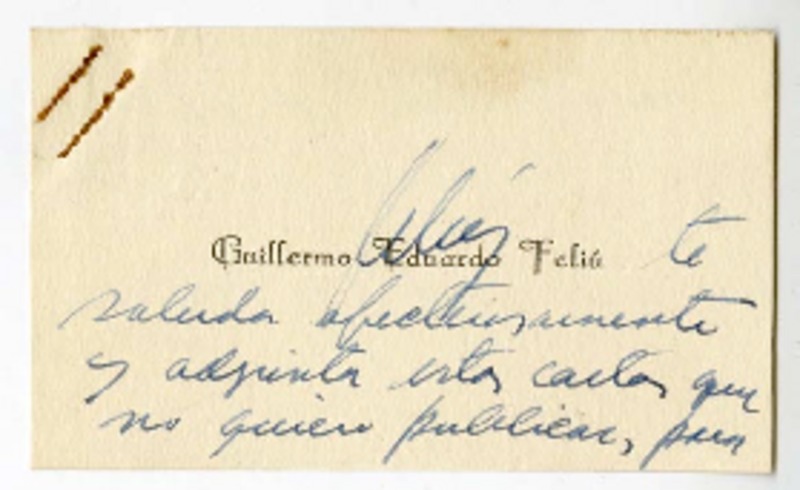 Guillermo Eduardo Feliú te
saluda afectuosamente
y adjunta estas cartas que
no quiero publicar, para